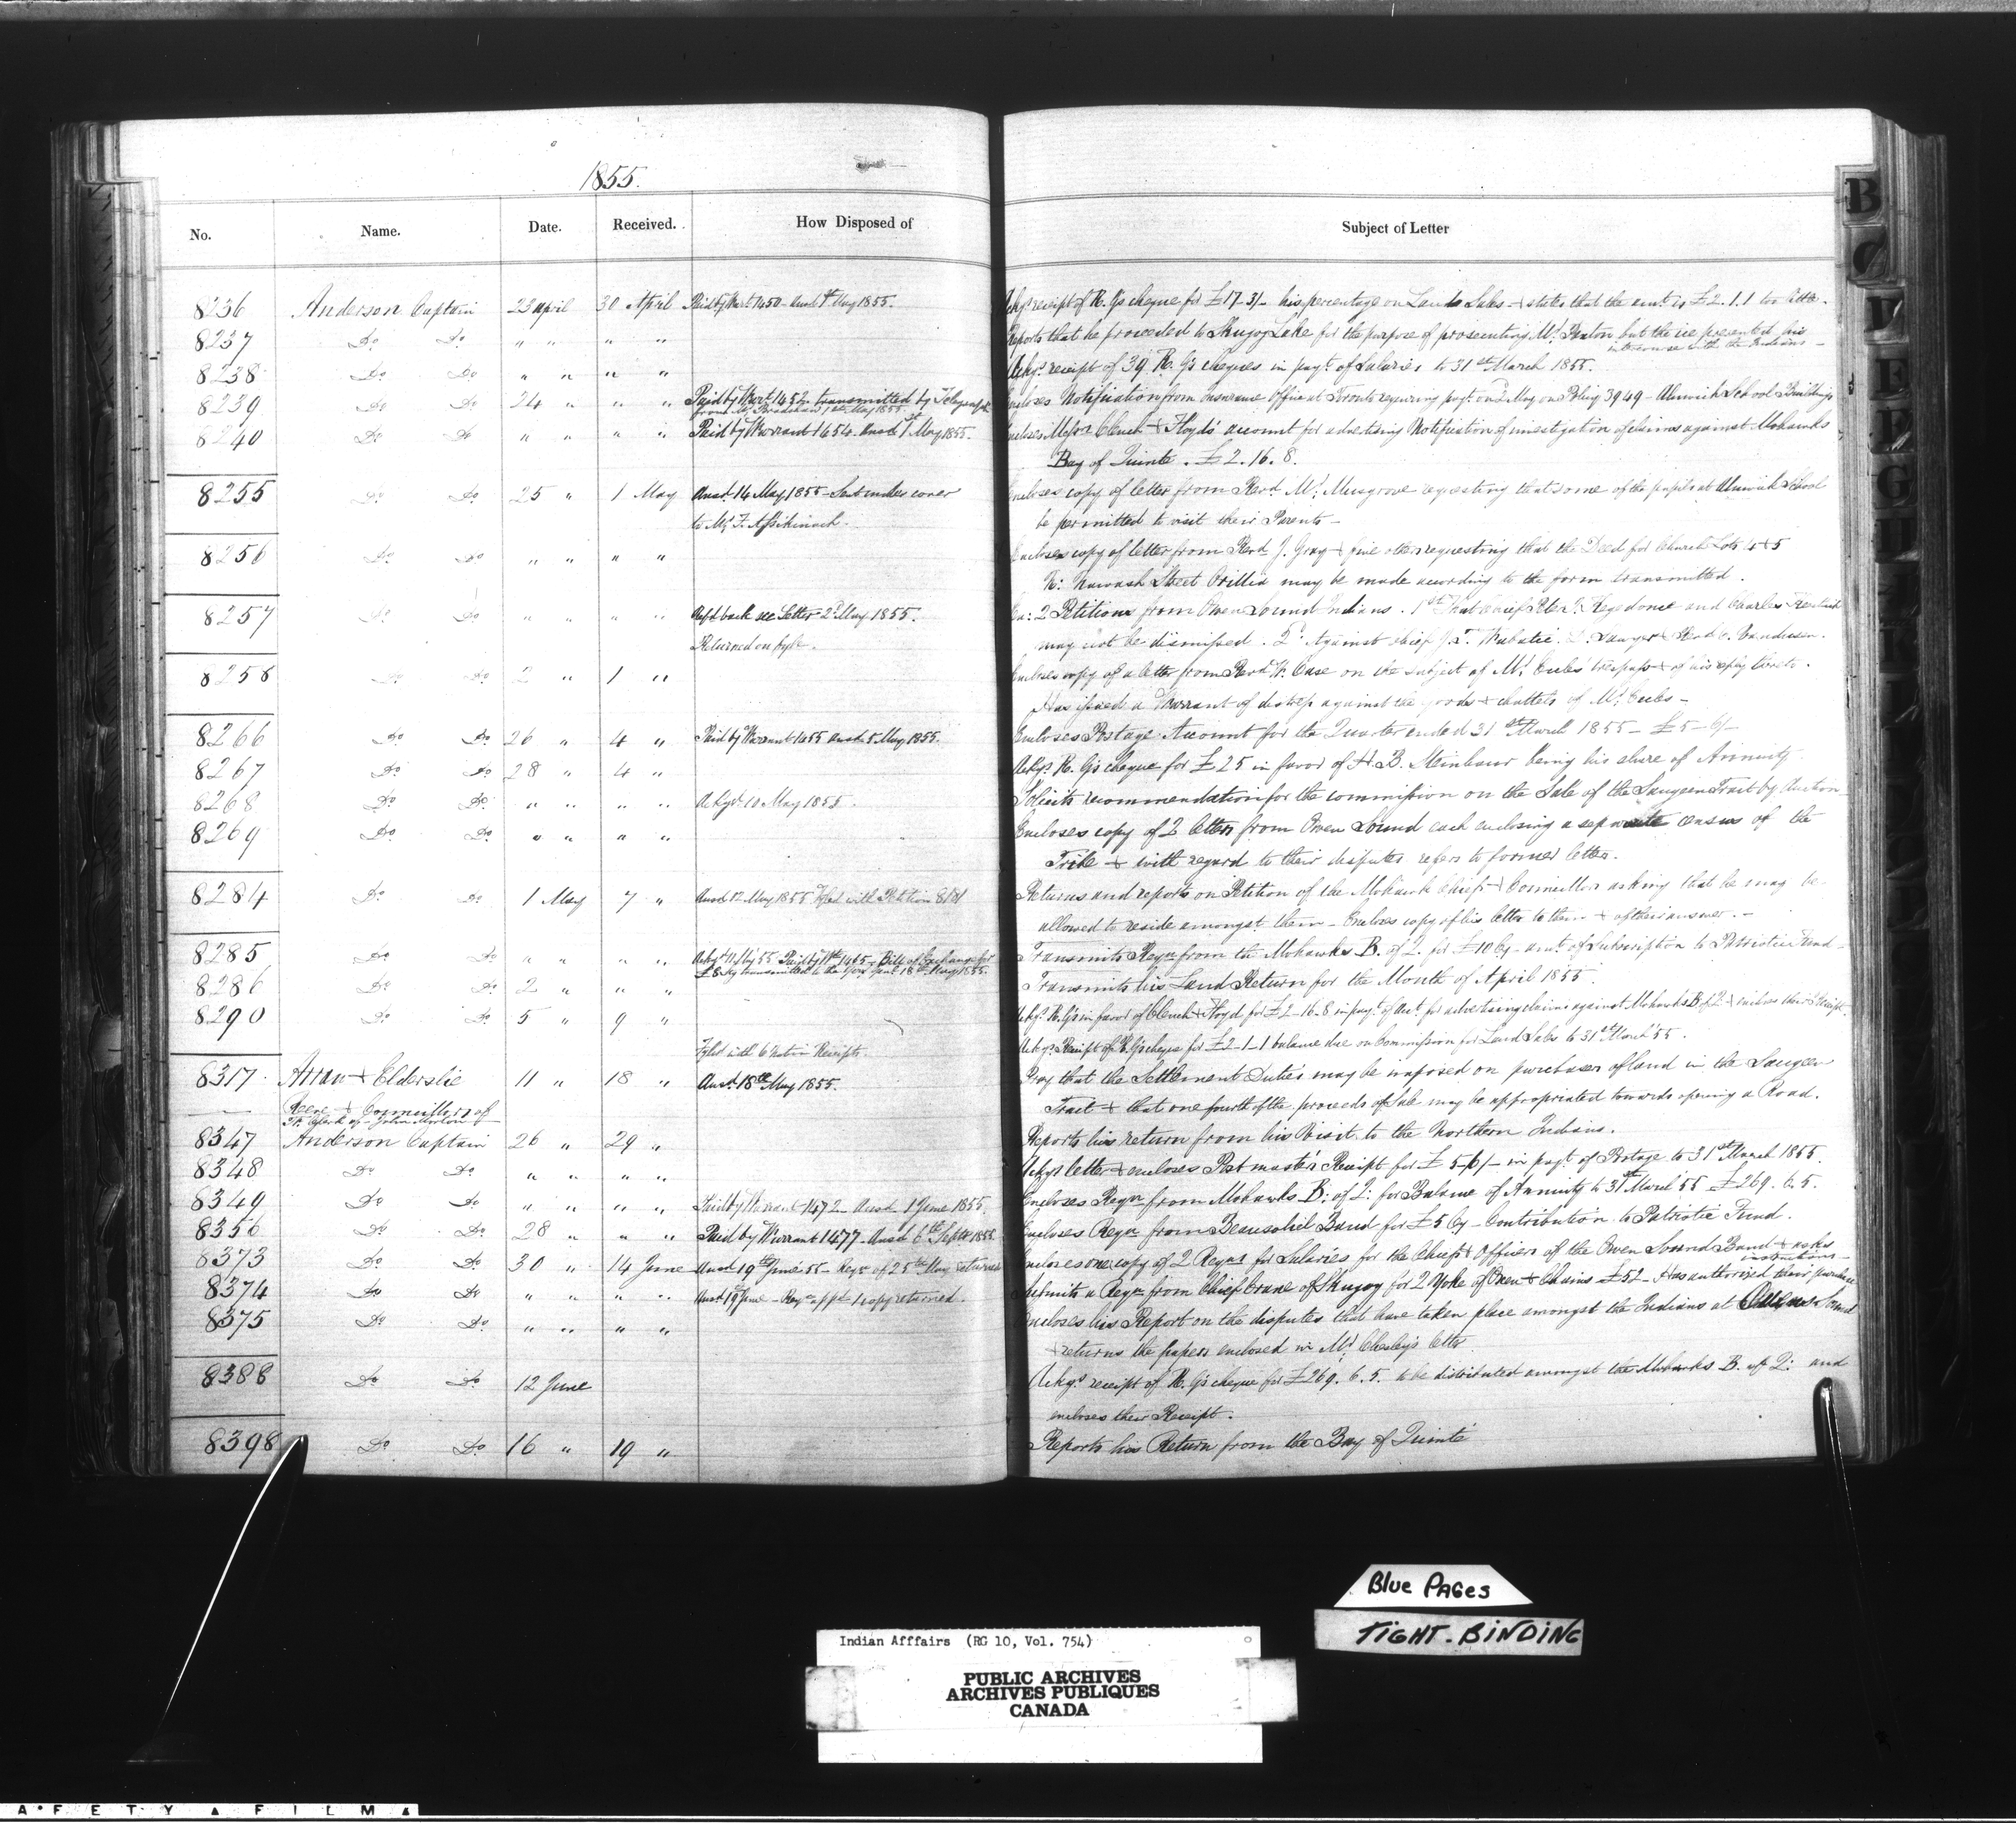 1855.
No. Name. Date. Received. How Disposed of Subject of Letter
8236 Anderson Captain 23 april 30 April Paid by Wart 1450 - Ansd May 1855. Ackgs receipt of R. G's cheque for £17-3/- his percentage on Lands Sales - & states that the amt is £2.1.1 too little.
8237 Do Do " " " " Reports that he proceeded to Skugog Lake for the purpose of prosecuting Mr. but the ice prevented his
intercourse with the Indians -
8238 Do Do " " " " Ackgs receipt of 39 R. G's cheques in payt. of Salaries to 31st March 1855.
8239 Do Do 24 " " " Paid by Wart. 1452 transmitted by Telegraph Encloses Notification from Insurance Office at Toronto requiring payt. on 2 May on Policy 3949 - Alnwick School Buildings
from Mr. Bradshaw 1st May 1855.
8240 Do Do " " " " Paid by Warrant 1454. Ansd. 1st May 1855. Encloses Messrs Clench & Floyd's account for advertising Notification of investigation of claims against Mohawks
Bay of Quinte. £2.16.8.
8255 Do Do 25 " 1 May Ansd. 14 May 1855 - Sent under cover Encloses copy of letter from Revd. Mr. Musgrove requesting that some of the pupils at Alnwick School
to Mr. F. Assikinack. be permitted to visit their Parents -
8256 Do Do " " " " Encloses copy of letter from Revd J. Gray & five others requesting that the Deed for Church Lots 4 & 5
N: Nawash Street Orillia may be made according to the form transmitted.
8257 Do Do " " " " back see Letter 2d May 1855. En: 2 Petitions from Owen Sound Indians. 1st That Chief Peter J. Kegedonce and Charles
Returned on fyle. may not be dismissed. 2d. Against Chief J. T. Wabatic. D. Sawyer & Revd C. Vandusen.
8258 Do Do 2 " 1 " Encloses copy of a letter from Revd W. Case on the subject of Mr. trespass & of his reply thereto.
Has issued a Warrant of distress against the goods & chattels of Mr.
8266 Do Do 26 " 4 " Paid by Warrant 1455 Ansd. 5 May 1855. Encloses Postage Account for the Quarter ended 31st March 1855 - £5-6/-
8267 Do Do 28 " 4 " Ackgs. R. G's cheque for £25 in favor of H. B. Steinhaur being his share of Annuity
8268 Do Do " " " " Ackgd. 10 May 1855. Solicits recommendation for the commission on the Sale of the Saugeen Tract by Auction
8269 Do Do " " " " Encloses copy of 2 letters from Owen Sound each enclosing a separate census of the
Tribe & with regard to their disputes refers to former letter.
8284 Do Do 1 May 7 " Ansd 12 May 1855 Fyled with Petition 8181 Returns and reports on Petition of the Mohawk Chiefs & Councillors asking that he may be
allowed to reside amongst them - Encloses copy of his letter to them & of their answer. -
8285 Do Do " " " " Ackgd 11 May 55 Paid by Wt 1465 - Bill of Exchange for Transmits Reqn from the Mohawks B. of Q. for £10 Cy - amt. of Subscription to Patriotic Fund -
£8 Stg transmitted to the Govr Genl 18th May 1855.
8286 Do Do 2 " " " Transmits his Land Return for the Month of April 1855
8290 Do Do 5 " 9 " Ackgs. R. G's in favor of Clench & Floyd for £2-16-8 in payt. of Act. for advertising claims against Mohawks B of Q & encloses their Receipt.
Fyled with Receipts. Ackgs. Receipt of R. G's cheque for £2-1-1 balance due on Commission for Land Sales to 31st March 55.
8317 Arran & Elderslie 11 " 18 " Ansd. 18th May 1855. Pray that the Settlement Duties may be imposed on purchasers of land in the Saugeen
Reeve & Councillors of Tract & that one fourth of the proceeds of Sale may be appropriated towards opening a Road.
Clerk of - John
8347 Anderson Captain 26 " 29 " Reports his return from his Visit to the Northern Indians.
8348 Do Do " " " " Ackgs letter & encloses Post master's Receipt for £5-6/- in payt. of Postage to 31st March 1855.
8349 Do Do " " " " Paid by Warrant 1472 - Ansd. 1 June 1855. Encloses Reqn from Mohawks B: of Q: for Balance of Annuity to 31st March 55 £269.6.5.
8356 Do Do 28 " " " Paid by Warrant 1477 - Ansd 6th Septr 1855. Encloses Reqn from Beausoliel Band for £5 Cy - Contribution to Patriotic Fund.
8373 Do Do 30 " 14 June Ansd 19th June 55 - Reqn of 25th May returned Encloses one copy of 2 Reqns for Salaries for the Chiefs & Officers of the Owen Sound Band & asks
instructions -
8374 Do Do " " " " Ansd 19 June - Reqn appd. 1 copy returned. Submits a Reqn from Chief Crane of Skugog for 2 Yoke of Oxen & Chains £52 - Has authorized their purchase
8375 Do Do " " " " Encloses his Report on the disputes that have taken place amongst the Indians at Owens Sound
& returns the papers enclosed in Mr. Chesley's letter
8388 Do Do 12 June Ackgs. receipt of R. G's cheque for £269.6.5. to be distributed amongst the Mohawks B. of Q: and
encloses their Receipt.
8398 Do Do 16 " 19 " Reports his Return from the Bay of Quinté
B
C
D
E
F
G
H
Blue PAGes
TIGHT-BINDING
Indian Afffairs (RG 10, Vol. 754)
PUBLIC ARCHIVES
ARCHIVES PUBLIQUES
CANADA
A F E T Y ▲ F I L M ▲